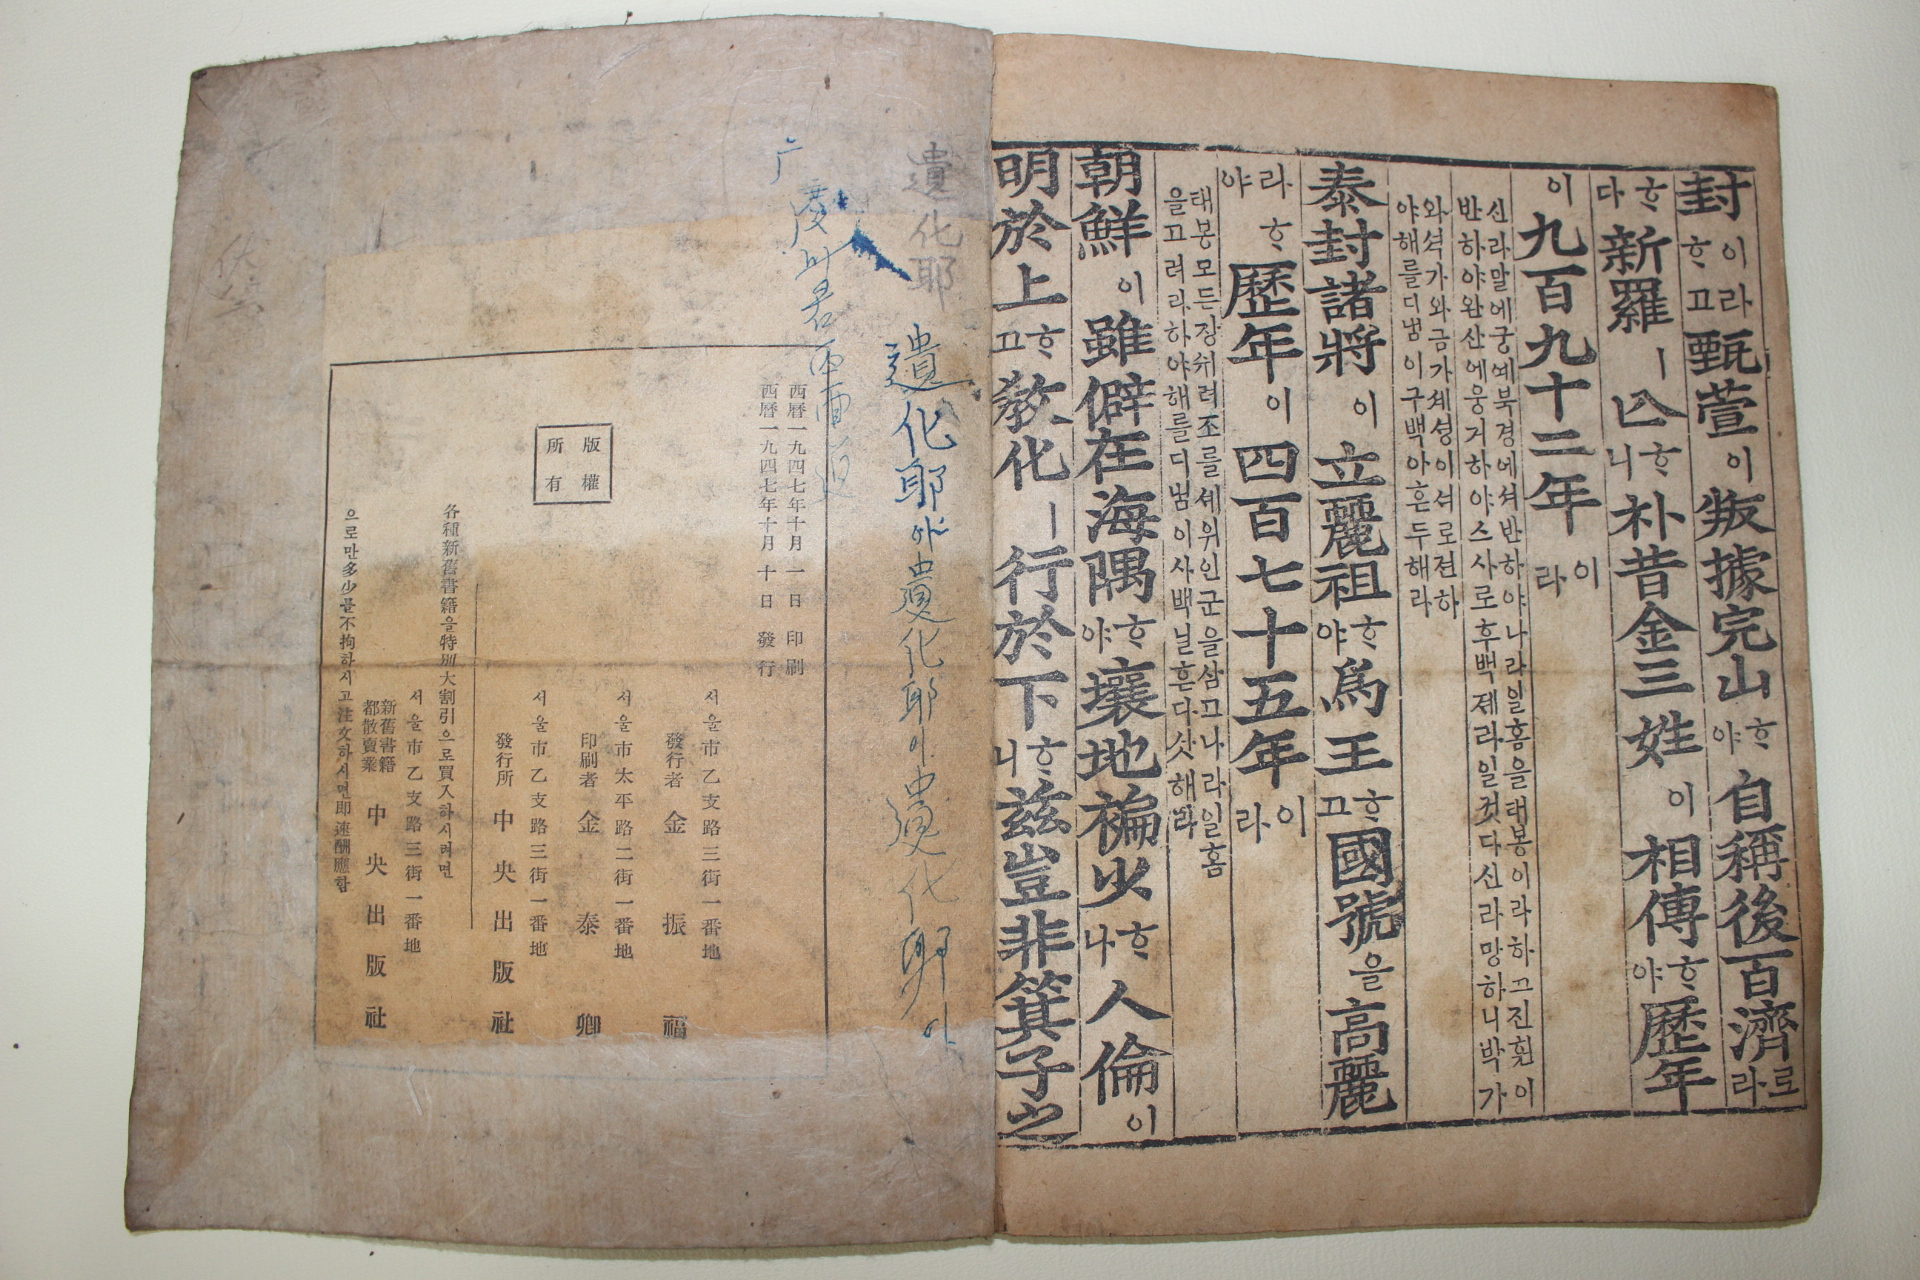 封이라ᄒᆞ고甄萱이叛據完山ᄒᆞ야自稱後百濟라로
ᄒᆞ다新羅ㅣ亡ᄒᆞ니朴昔金三姓이相傳ᄒᆞ야歷年
이九百九十二年이라
신라말에궁예북경에셔반하야나라일홈을태봉이라하고진훤이
반하야완산에웅거하야스사로후백졔라일컷다신라망하니박가
와셕가와금가셰셩이셔로젼하
야해를디냄이구백아흔두해라
泰封諸將이立麗祖ᄒᆞ야爲王ᄒᆞ고國號을高麗
라ᄒᆞ야歷年이四百七十五年이라
태봉모든장쉬려조를셰워인군을삼고나라일홈
을고려라하야해를디냄이사백닐흔다삿해라
朝鮮이雖僻在海隅ᄒᆞ야壤地褊少ᄒᆞ나人倫이
明於上ᄒᆞ고敎化ㅣ行於下ᄒᆞ니玆豈非箕子之
遺化耶
遺化耶
西曆一九四七年十月一日 印刷
西曆一九四七年十月十日 發行
版權所有
서울市乙支路三街一番地
發行者 金振福
서울市太平路二街一番地
印刷者 金泰卿
서울市乙支路三街一番地
發行所 中央出版社
各種新舊書籍을特別大割引으로買入하시려면
서울市乙支路三街一番地
新舊書籍都散賣業 中央出版社
으로만多少를不拘하시고注文하시면即速酬應함